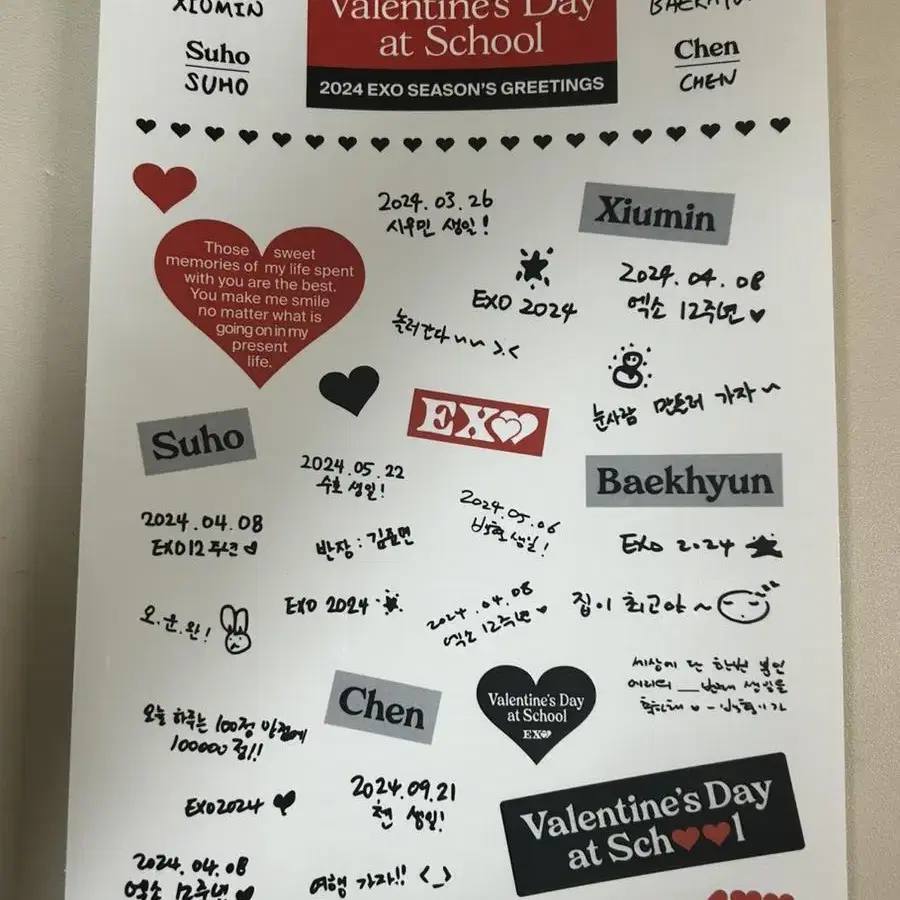 XIUMIN
Suho
SUHO
Valentine's Day
at School
2024 EXO SEASON'S GREETINGS
Chen
CHEN
2024.03.26
시우민 생일!
Xiumin
Those sweet
memories of my life spent
with you are the best.
You make me smile
no matter what is
going on in my
present
life.
EXO 2024
2024.04.08
엑소 12주년
놀러간다 ~~ >.<
눈사람 만들러 가자~
EXO
Suho
2024.05.22
수호 생일!
2024.05.06
백현 생일!
Baekhyun
2024.04.08
EXO 12주년
반장: 김준면
EXO 2024
오.운.완!
EXO 2024
2024.04.08
엑소 12주년
집이 최고야~
세상에 단 한번 뿐인
에리의 __번째 생일을
축하해 - 백현이가
Chen
Valentine's Day
at School
EXO
오늘 하루는 100점 만점에
100000점!!
EXO2024
2024.09.21
첸 생일!
Valentine's Day
at School
2024.04.08
엑소 12주년
여행 가자!! <_>